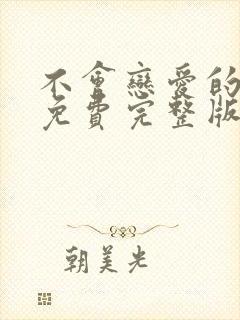 不會戀愛的
免費完整版
朝美光